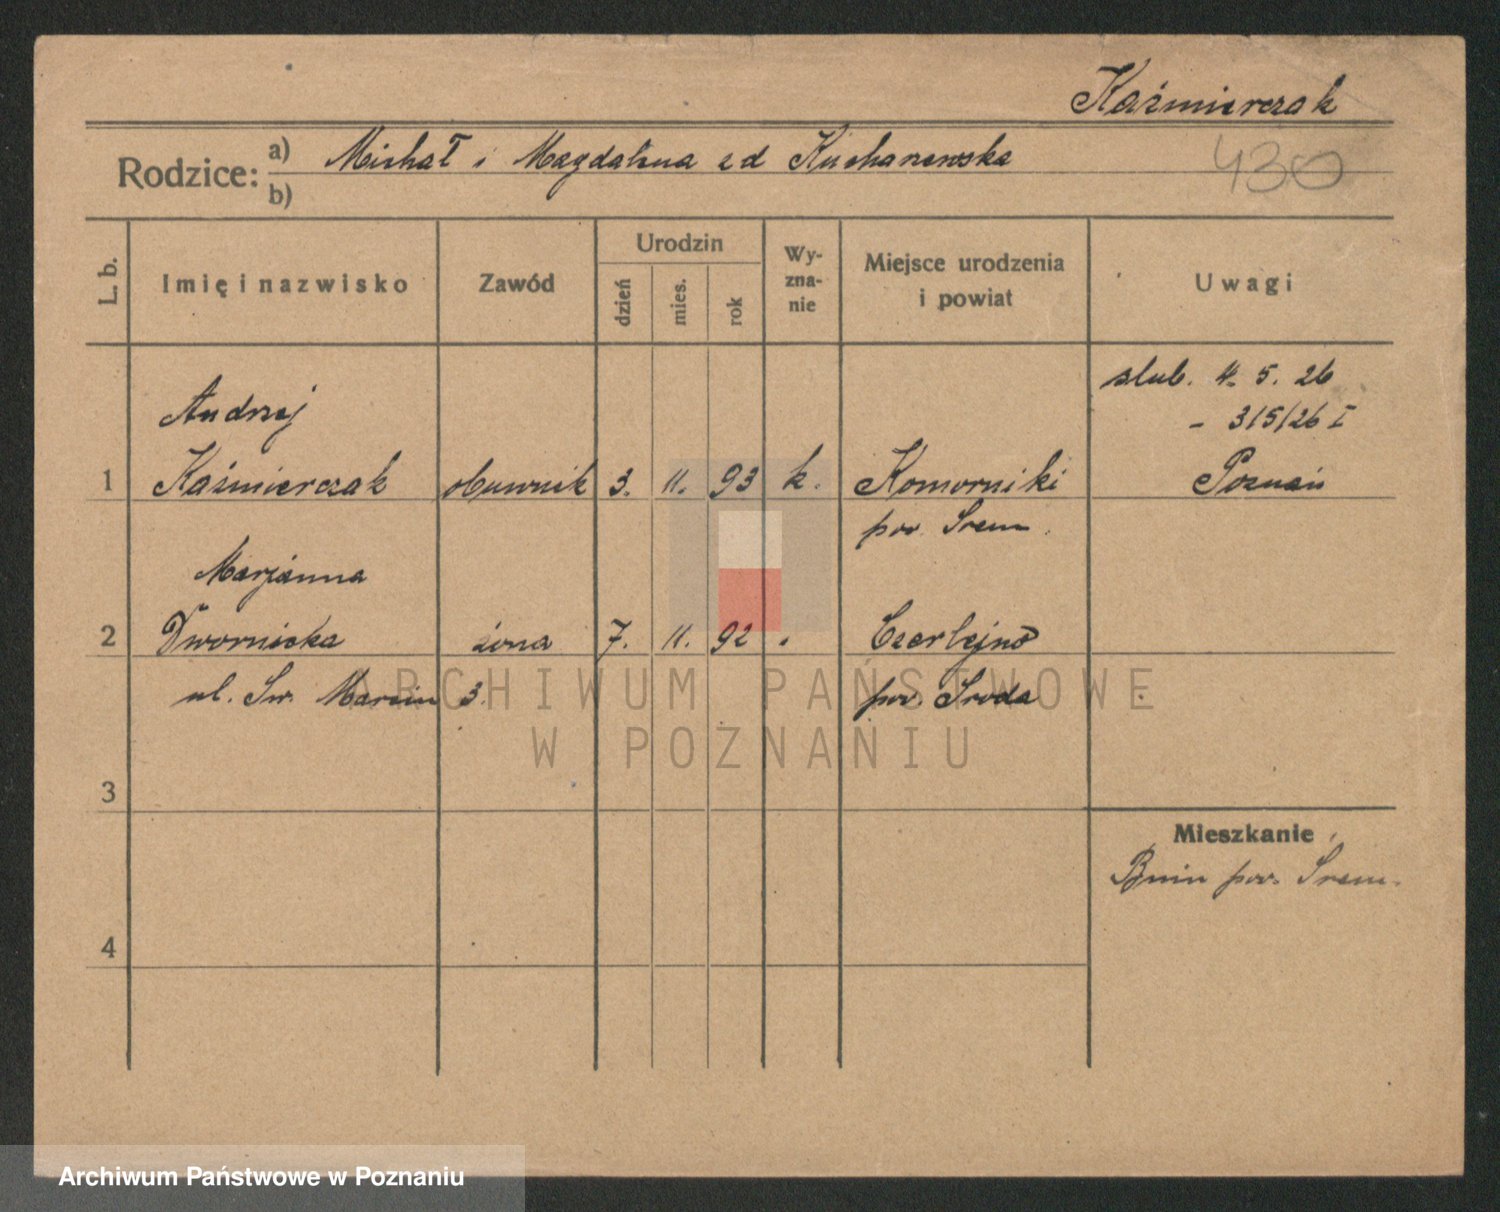 Kaźmierczak
430
Rodzice: a) Michał i Magdalena zd Kucharzewska
b)
L. b.
Imię i nazwisko
Zawód
Urodzin
dzień
mies.
rok
Wy-
zna-
nie
Miejsce urodzenia
i powiat
Uwagi
ślub. 4. 5. 26
- 315/26 I
Poznań
Andrzej
1 Kaźmierczak obuwnik 3. 11. 93 k. Komorniki
pow. Śrem.
Marjanna
2 Dwornicka żona 7. 11. 92 . Czerlejno
ul. Św. Marcin 3. pow. Środa
3
4
Mieszkanie
Bnin pow. Śrem.
ARCHIWUM PAŃSTWOWE
W POZNANIU
Archiwum Państwowe w Poznaniu